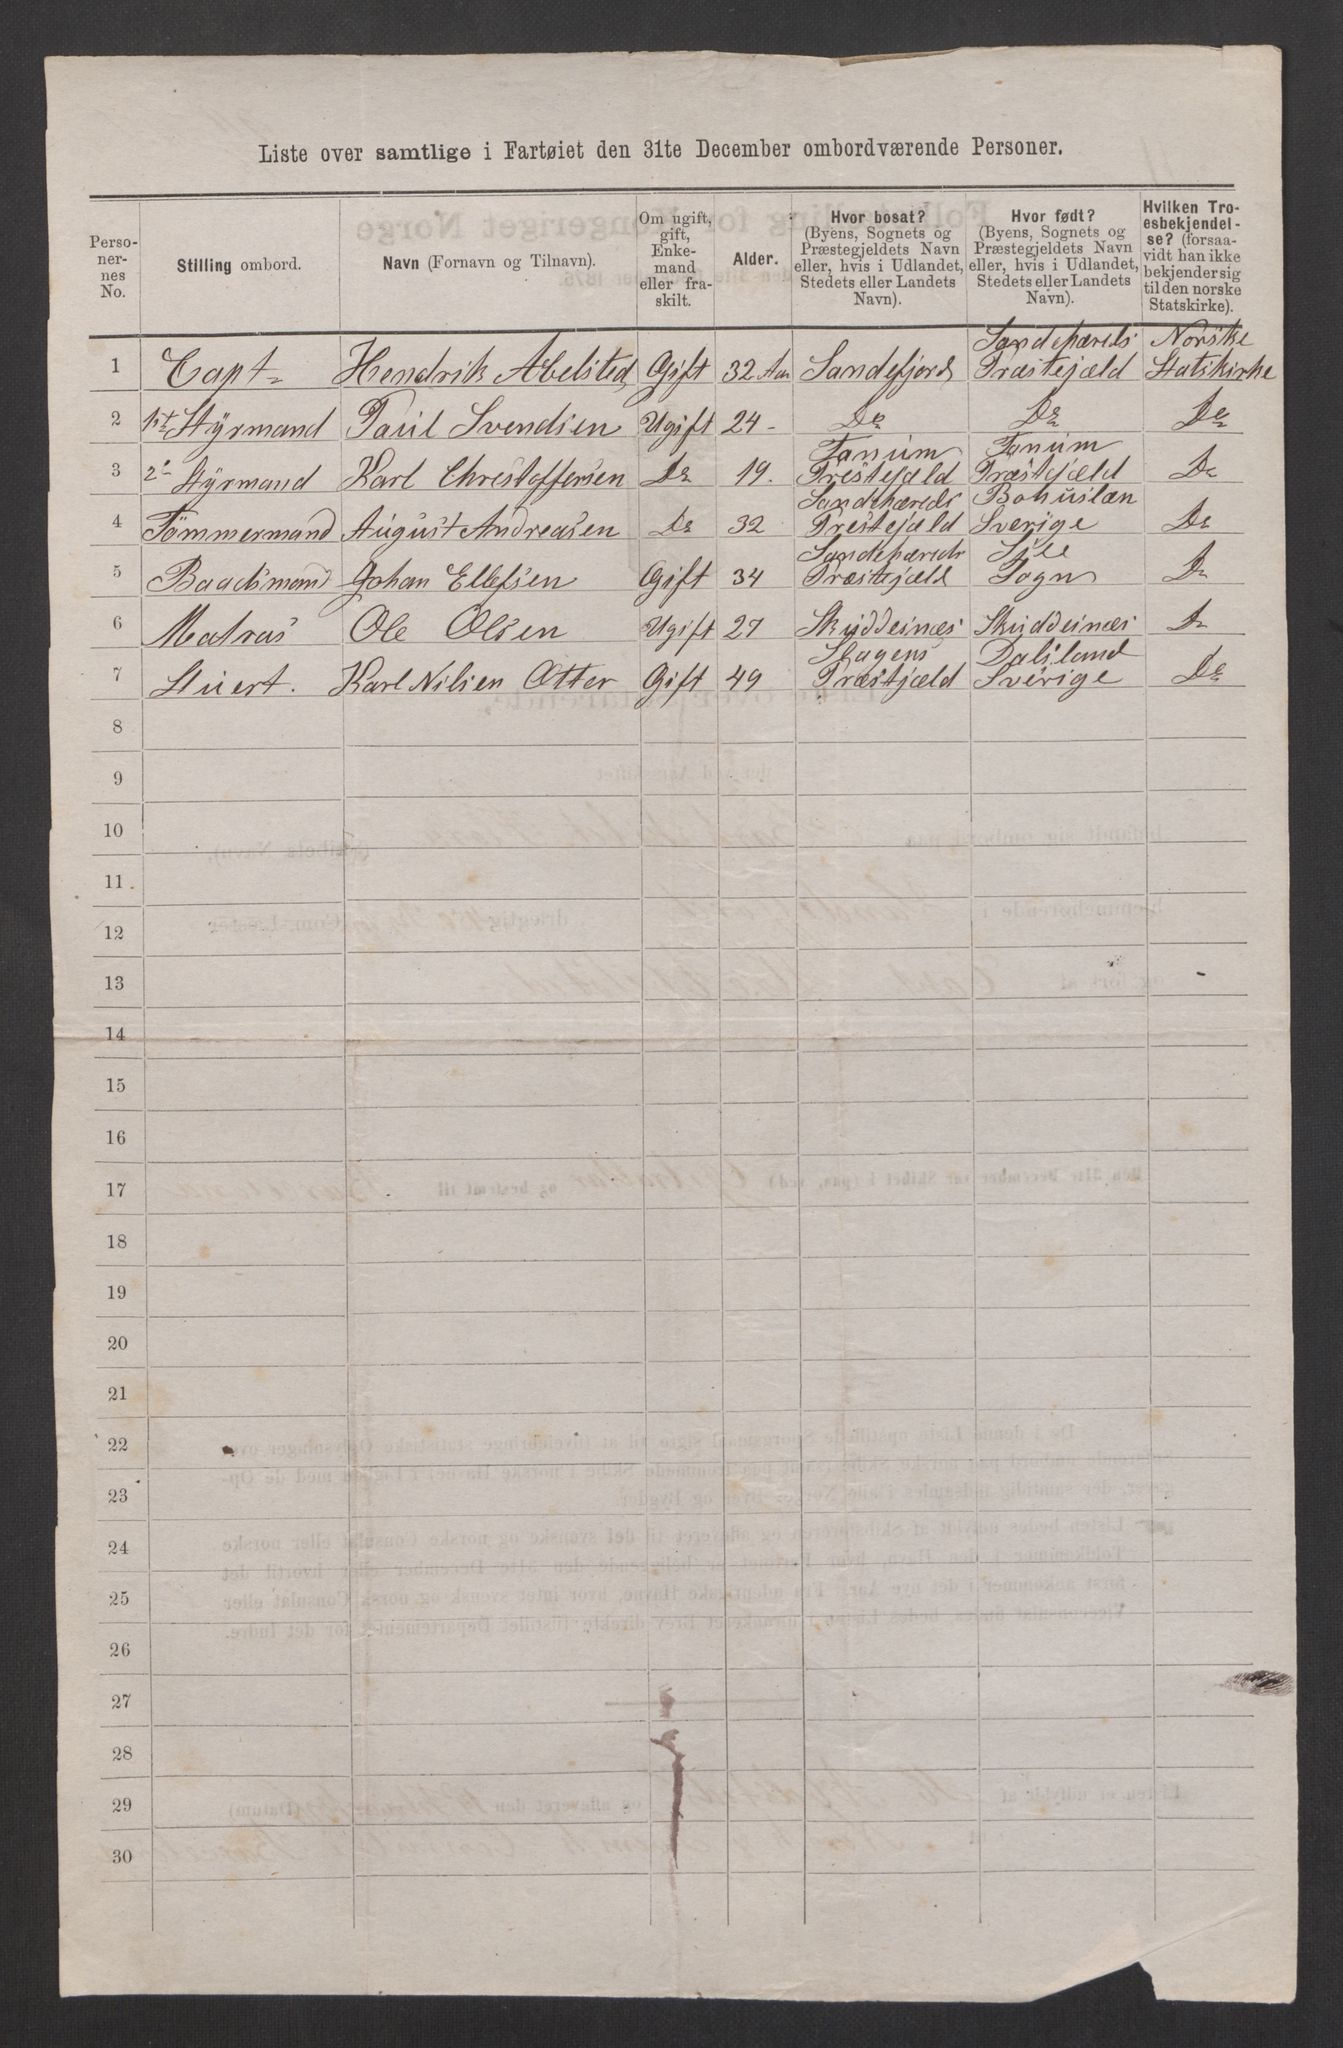 Liste over samtlige i Fartøiet den 31te December ombordværende Personer.
Perso-
ner-
nes
No.
Stilling ombord.
Navn (Fornavn og Tilnavn).
Om ugift,
gift,
Enke-
mand
eller fra-
skilt.
Alder.
Hvor bosat?
(Byens, Sognets og
Præstegjeldets Navn
eller, hvis i Udlandet,
Stedets eller Landets
Navn).
Hvor født?
(Byens, Sognets og
Præstegjeldets Navn
eller, hvis i Udlandet,
Stedets eller Landets
Navn).
Hvilken Tro-
esbekjendel-
se? (forsaa-
vidt han ikke
bekjender sig
til den norske
Statskirke).
Sandehæreds Norske
1 Capt Hendrik Abelsted Gift 32 Aar Sandefjord Præstejæld Statskirke
2 1st Styrmand Paul Svendsen Ugift 24 - Do Do Do
Tanum Tanum
3 2e Styrmand Karl Christoffersen Do 19. Præstejæld Præstejæld Do
Sandehæreds Bohuslæn
4 Tømmermand August Andreasen Do 32 Præstejæld Sverige Do
Sandehæreds
5 Baadsmand Johan Ellefsen Gift 34 Præstejæld Sogn Do
6 Matros Ole Olsen Ugift 27 Skuddesnæs Skuddesnæs Do
Slagens Dalsland
7 Stuert. Karl Nilsen Otter Gift 49 Præstjæld Sverige Do
8
9
10
11
12
13
14
15
16
17
18
19
20
21
22
23
24
25
26
27
28
29
30